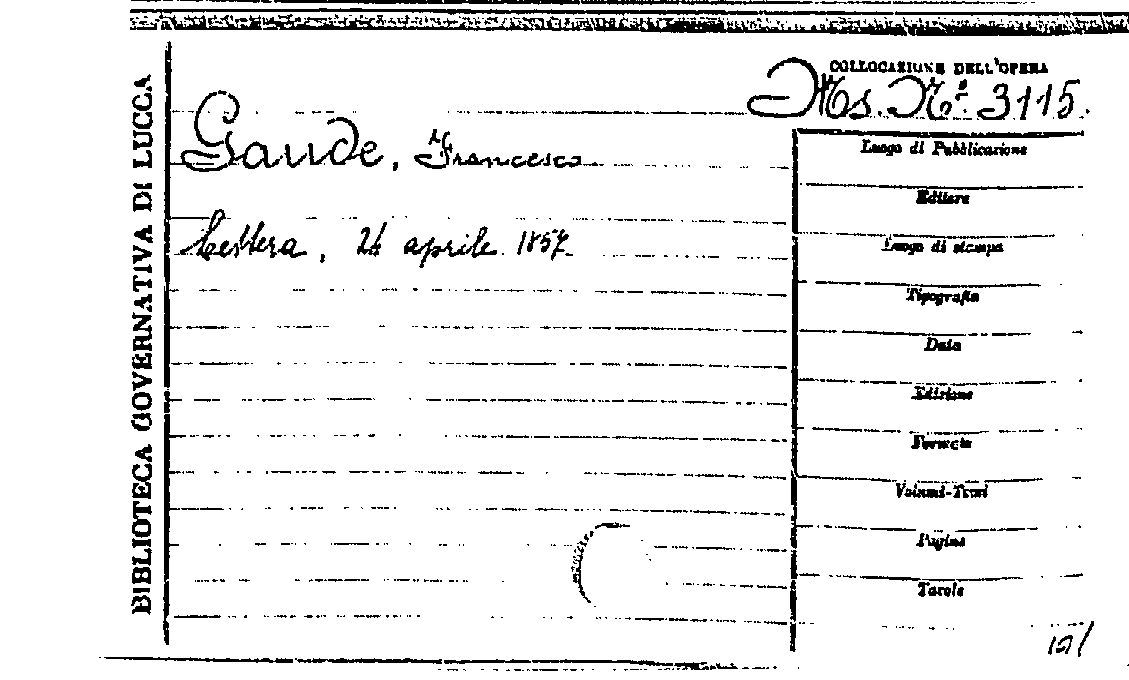 BIBLIOTECA GOVERNATIVA DI LUCCA
COLLOCAZIONE DELL'OPERA
Ms. N.º 3115.
Gaude, Francesco
Lettera, 24 aprile 1857.
Luogo di Pubblicazione
Editore
Luogo di stampa
Tipografia
Data
Edizione
Formato
Volumi-Tomi
Pagine
Tavole